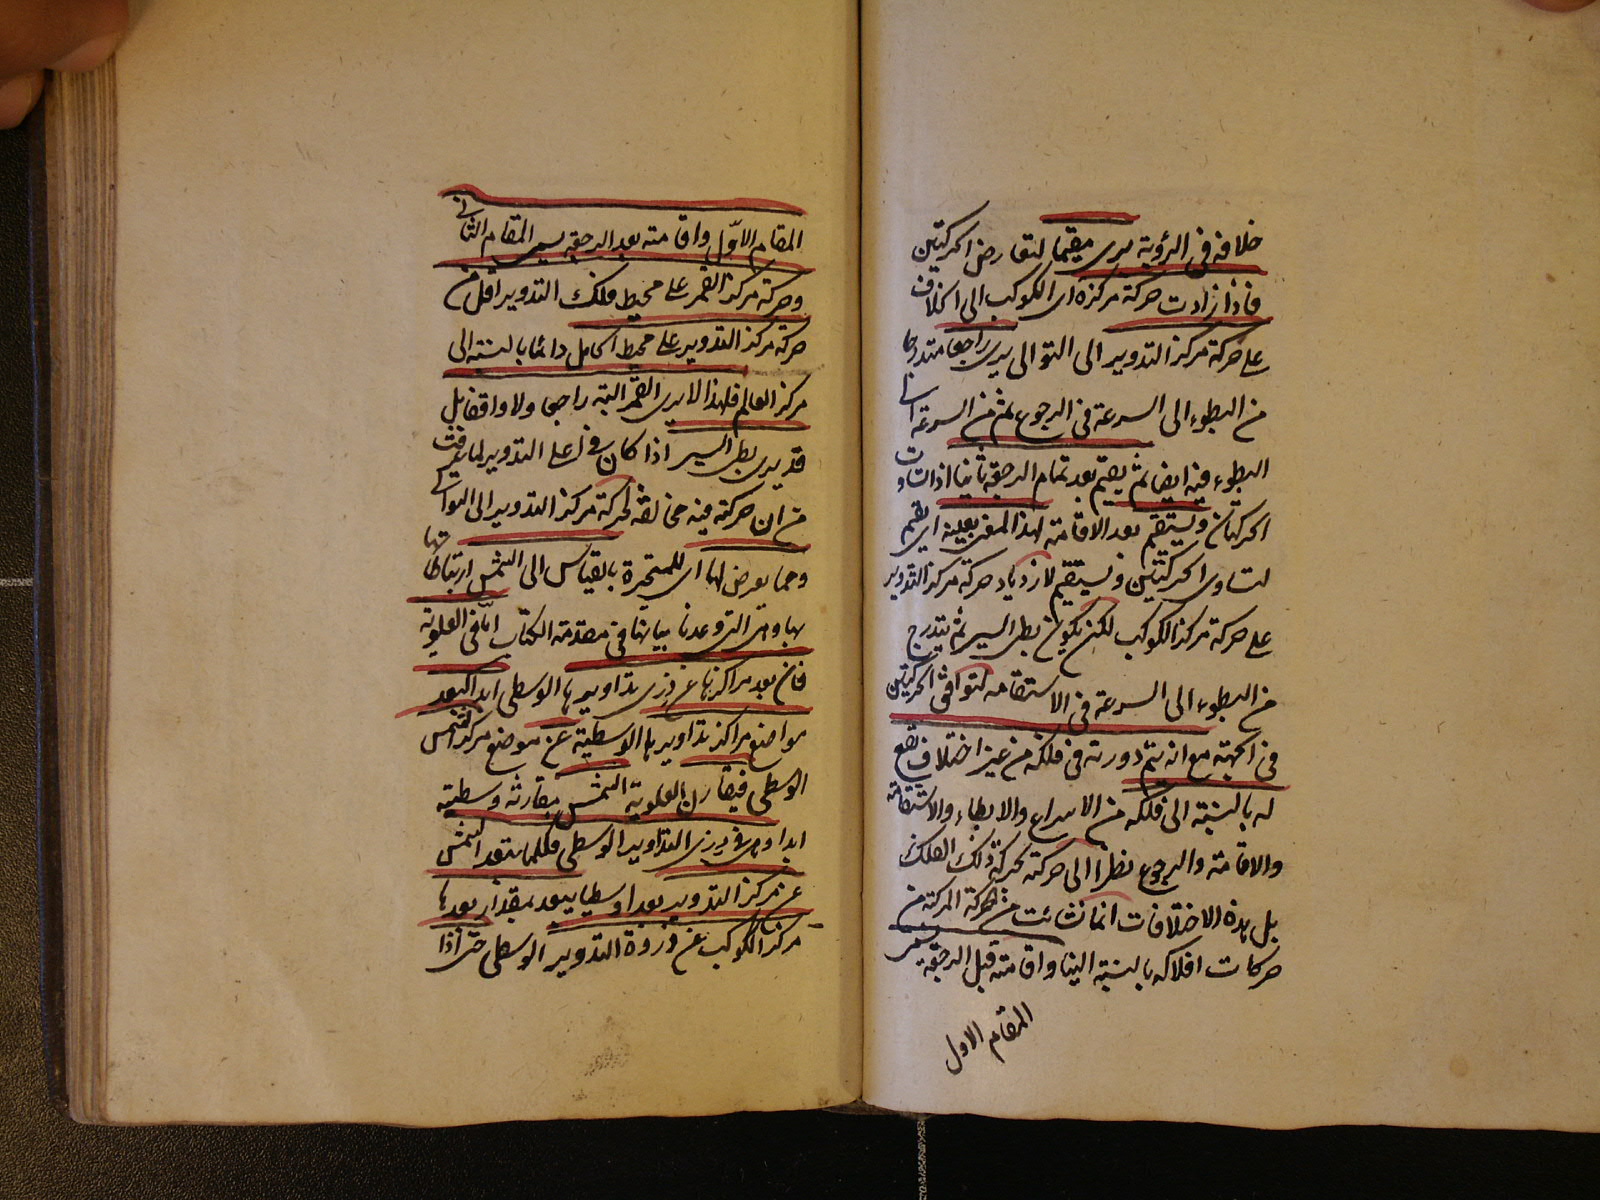 خلافه فى الرؤية يرى مقيما لتعارض الحركتين
فاذا زادت حركة مركزه اى الكوكب الى الخلاف
على حركة مركز التدوير الى التوالى يرى راجعا متدرجا
من البطوء الى السرعة فى الرجوع ثم من السرعة الى
البطوء فيه ايضا ثم يقيم بعد تمام الرجعة ثانيا اذا تساوت
الحركتان ويستقيم بعد الاقامة لهذا المعنى بعينه اى يقيم
لتساوى الحركتين ويستقيم لازدياد حركة مركز التدوير
على حركة مركز الكوكب لكن يكون بطى السير ثم يتدرج
من البطوء الى السرعة فى الاستقامة لتوافق الحركتين
فى الجهة مع انه يتم دورته فى فلكه من غير اختلاف يقع
له بالنسبة الى فلكه من الاسراع والابطاء والاستقامة
والاقامة والرجوع نظرا الى حركته بحركة ذلك الفلك
بل هذه الاختلافات انما نشائت من الحركة المركبة من
حركات افلاكه بالنسبة الينا واقامته قبل الرجعة يسمى
المقام الاول
المقام الاوّل واقامته بعد الرجعة يسمى المقام الثانى
وحركة مركز القمر على محيط فلك التدوير اقل من
حركة مركز التدوير على محيط الحامل دائما بالنسبة الى
مركز العالم فلهذا لا يرى القمر البتة راجعا ولا واقفا بل
قد يرى بطى السير اذا كان فى اعلى التدوير لما عرفت
من ان حركته فيه مخالفة لحركة مركز التدوير الى التوالى
ومما يعرض لها اى للمتحيرة بالقياس الى الشمس ارتباطاتها
بها وهى التى وعدنا بيانها فى مقدمة الكتاب امّا فى العلوية
فان بعد مراكزها عن ذرى تداويرها الوسطى ابدا كبعد
مواضع مراكز تداويرها الوسطية عن موضع مركز الشمس
الوسطى فيقارن العلوية الشمس مقارنة وسطية
ابدا وهى فى ذرى التداوير الوسطى فكلما يتبعد الشمس
عن مركز التدوير بعدا وسطيا يبعد بمقدار بعدها
مركز الكوكب عن ذروة التدوير الوسطى حتى اذا